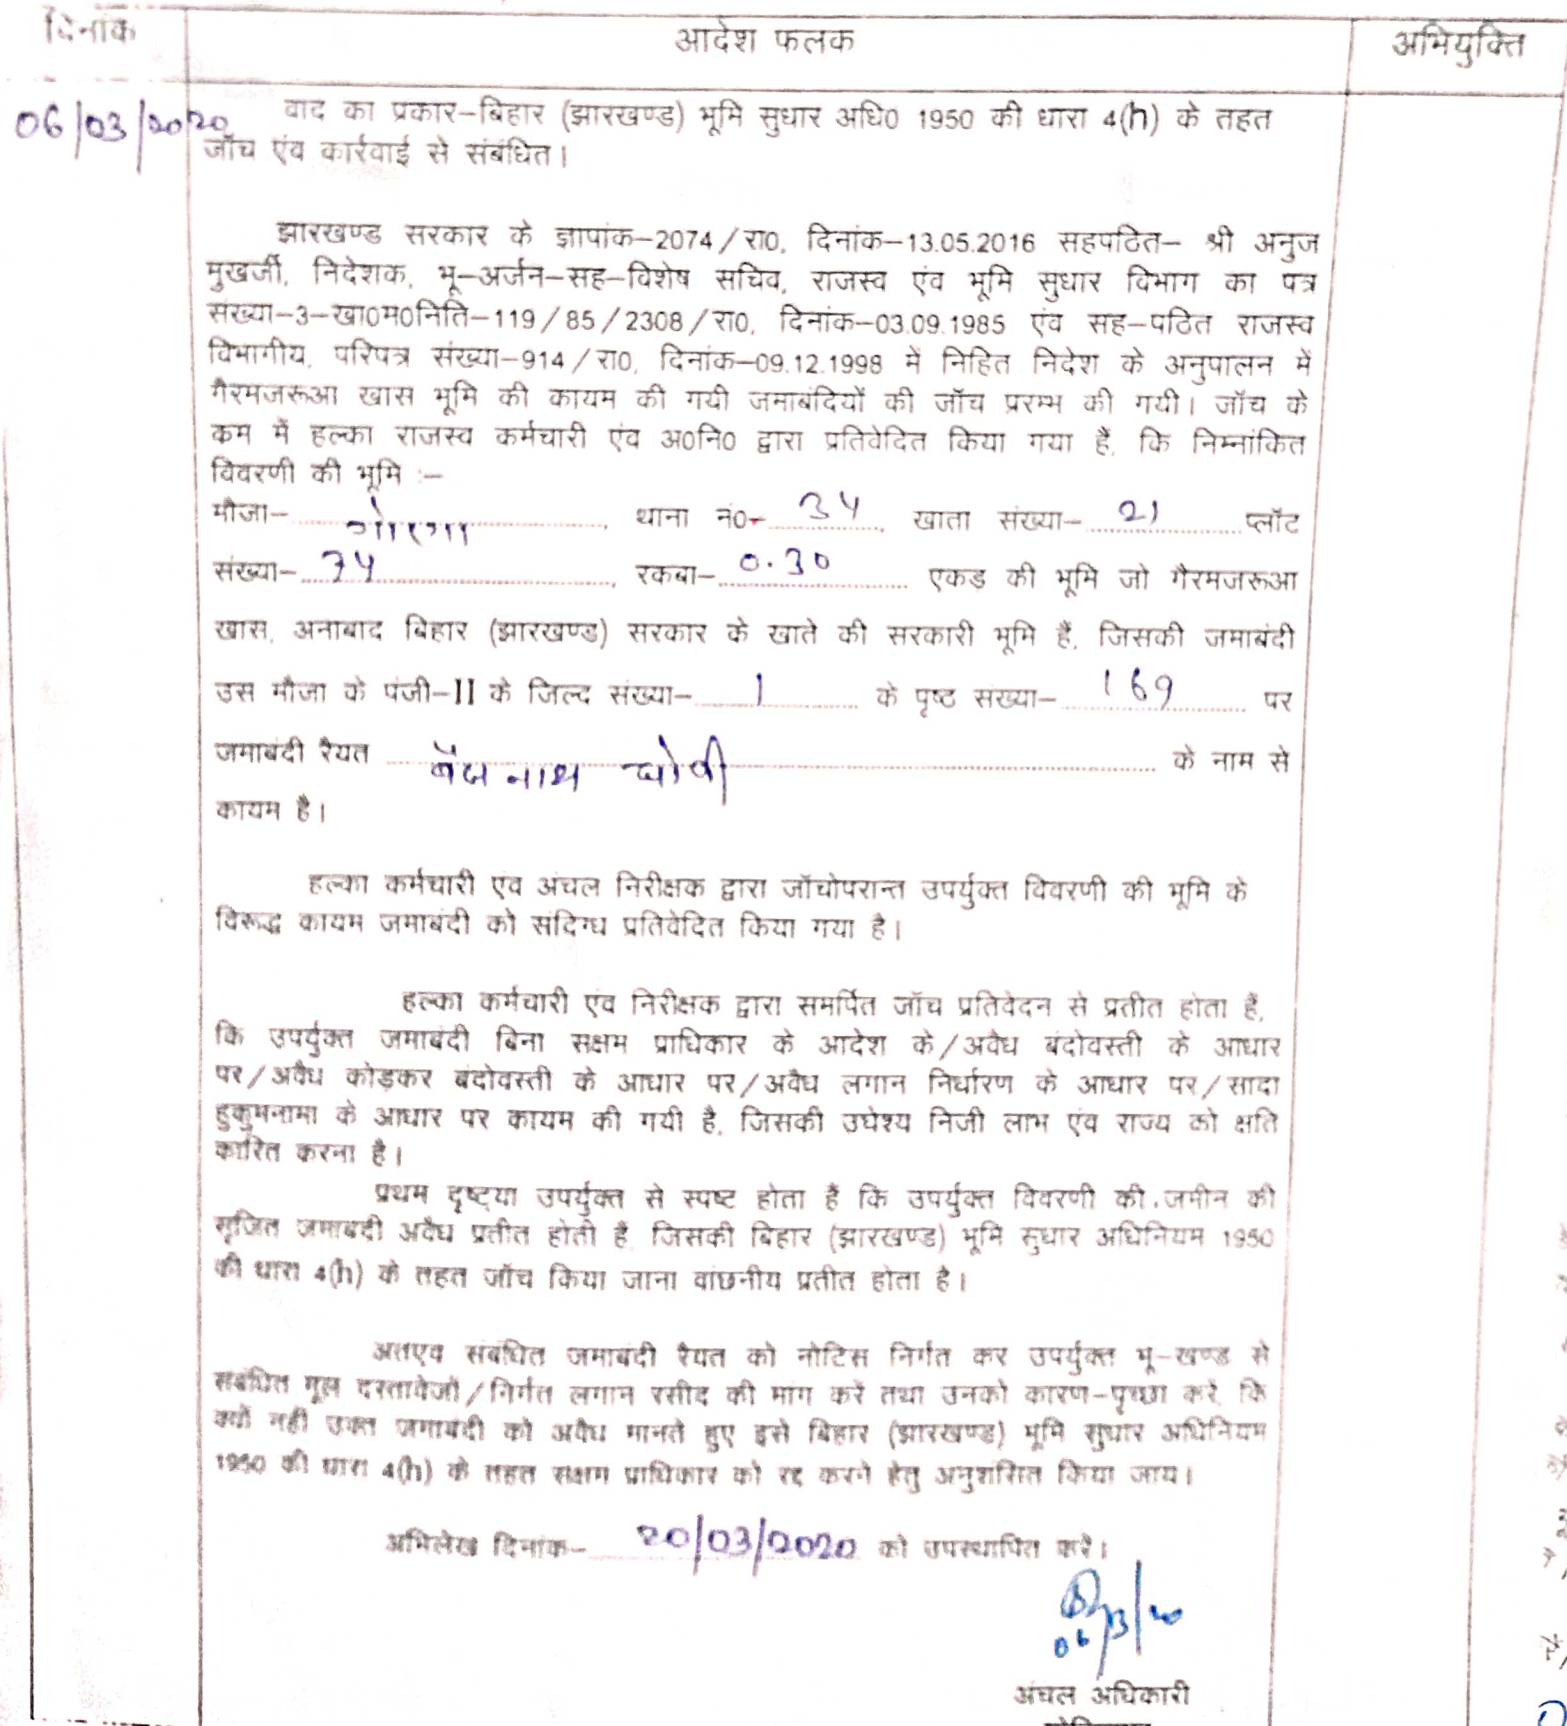 दिनांक आदेश फलक अभियुक्ति
06/03/2020 वाद का प्रकार–बिहार (झारखण्ड) भूमि सुधार अधि0 1950 की धारा 4(h) के तहत
जॉच एंव कार्रवाई से संबंधित।
झारखण्ड सरकार के ज्ञापांक–2074/रा0, दिनांक–13.05.2016 सहपठित– श्री अनुज
मुखर्जी, निदेशक, भू–अर्जन–सह–विशेष सचिव, राजस्व एंव भूमि सुधार विभाग का पत्र
संख्या–3–खा0म0निति–119/85/2308/रा0, दिनांक–03.09.1985 एंव सह–पठित राजस्व
विभागीय, परिपत्र संख्या–914/रा0, दिनांक–09.12.1998 में निहित निदेश के अनुपालन में
गैरमजरूआ खास भूमि की कायम की गयी जमाबंदियों की जॉच प्ररम्भ की गयी। जॉच के
कम में हल्का राजस्व कर्मचारी एंव अ0नि0 द्वारा प्रतिवेदित किया गया हैं, कि निम्नांकित
विवरणी की भूमि :–
मौजा– , थाना नं0– 34 , खाता संख्या– 21 प्लॉट
संख्या– 74 , रकबा– 0.30 एकड़ की भूमि जो गैरमजरूआ
खास, अनाबाद बिहार (झारखण्ड) सरकार के खाते की सरकारी भूमि हैं, जिसकी जमाबंदी
उस मौजा के पंजी–II के जिल्द संख्या– 1 के पृष्ठ संख्या– 169 पर
जमाबंदी रैयत बैजनाथ धोबी के नाम से
कायम है।
हल्का कर्मचारी एंव अंचल निरीक्षक द्वारा जॉचोपरान्त उपर्युक्त विवरणी की भूमि के
विरूद्ध कायम जमाबंदी को संदिग्ध प्रतिवेदित किया गया है।
हल्का कर्मचारी एंव निरीक्षक द्वारा समर्पित जॉच प्रतिवेदन से प्रतीत होता हैं,
कि उपर्युक्त जमाबंदी बिना सक्षम प्राधिकार के आदेश के/अवैध बंदोवस्ती के आधार
पर/अवैध कोड़कर बंदोवस्ती के आधार पर/अवैध लगान निर्धारण के आधार पर/सादा
हुकुमनामा के आधार पर कायम की गयी है, जिसकी उघेश्य निजी लाभ एंव राज्य को क्षति
कारित करना है।
प्रथम दृष्ट्या उपर्युक्त से स्पष्ट होता हैं कि उपर्युक्त विवरणी की जमीन की
सृजित जमाबंदी अवैध प्रतीत होती हैं, जिसकी बिहार (झारखण्ड) भूमि सुधार अधिनियम 1950
की धारा 4(h) के तहत जॉच किया जाना वांछनीय प्रतीत होता है।
अतएव संबंधित जमाबंदी रैयत को नोटिस निर्गत कर उपर्युक्त भू–खण्ड से
संबंधित मूल दस्तावेजों/निर्गत लगान रसीद की मांग करें तथा उनको कारण–पृच्छा करें, कि
क्यों नहीं उक्त जमाबंदी को अवैध मानते हुए इसे बिहार (झारखण्ड) भूमि सुधार अधिनियम
1950 की धारा 4(h) के तहत सक्षम प्राधिकार को रद्द करने हेतु अनुशंसित किया जाय।
अभिलेख दिनांक– 20/03/2020 को उपस्थापित करें।
06/3/20
अंचल अधिकारी